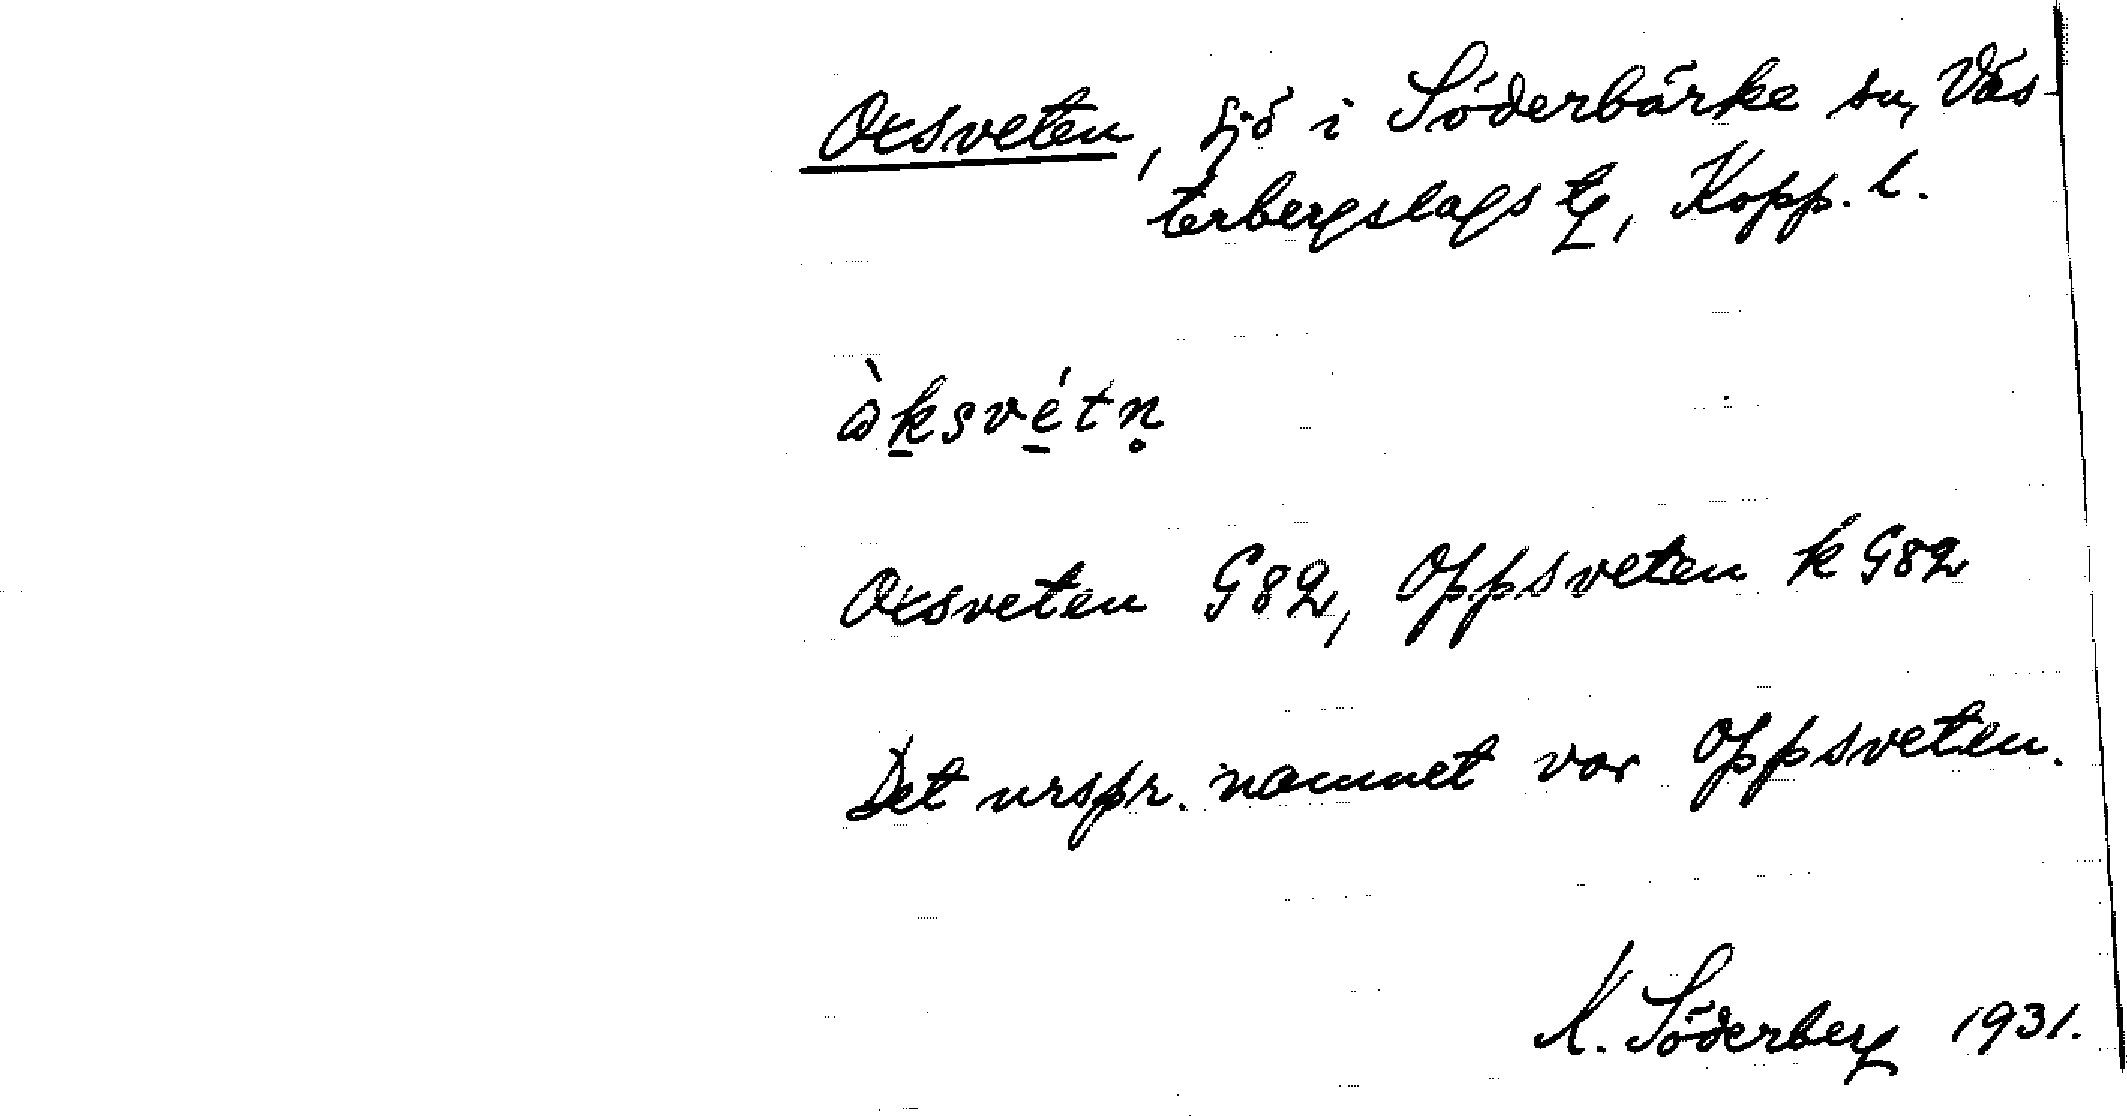 Oxsveten, sjö i Söderbärke sn, Väs-
terbergslags tg, Kopp. l.
ὰksvétn̥
Oxsveten G82, Oppsveten k G82
Det urspr. namnet var Oppsveten.
K. Söderberg 1931.